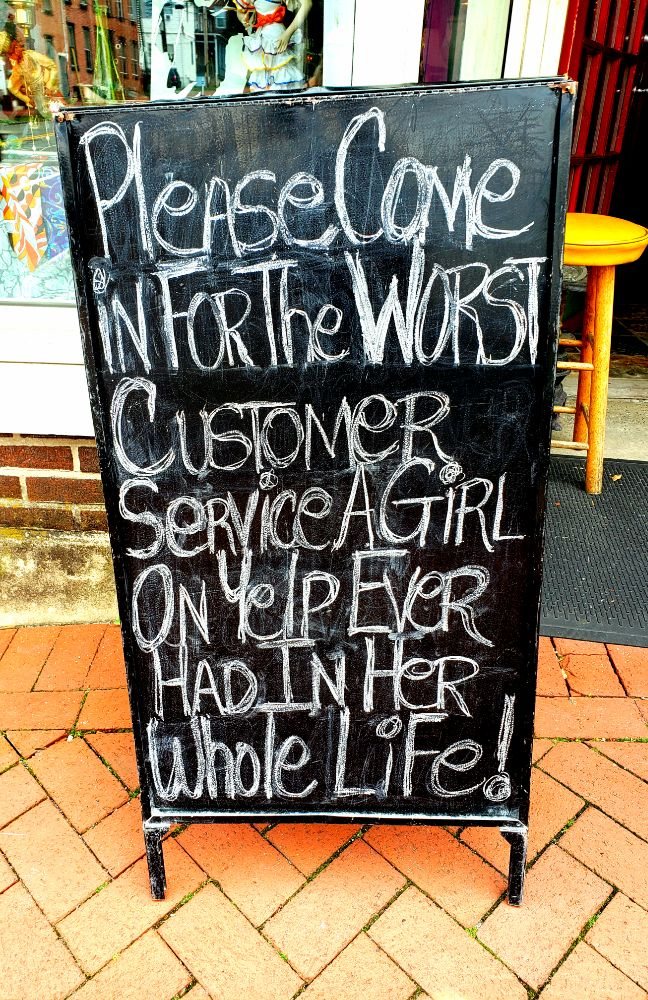 Please Come
in For The Worst
Customer
Service A Girl
On Yelp Ever
Had In Her
Whole Life!